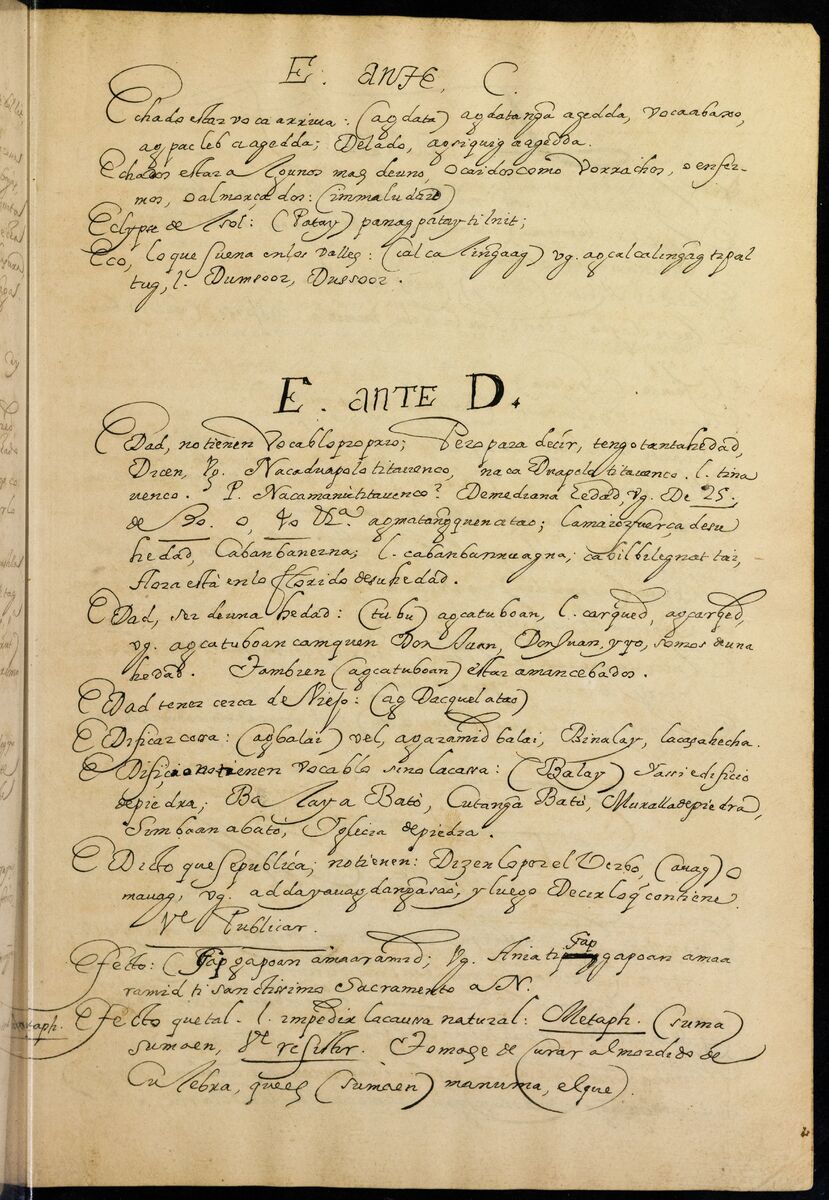 E. ante, C.
Echado estar voca arriua: (agdata) agdatangã agedda, vocaabaxo,
ag pacleb a agedda; De lado, agsiquig a agedda.
Echados estar algunos mas de uno, o caidos como vorrachos, o enfer-
mos, o almorçados: (immaludaid)
Eclypse de sol: (Patay) panagpatay ti Init;
Eco, lo que suena en los valles: (alcalingãag) vg. agcalcalingãag ti pal
tug, l. Dumsoor, Dussoor.
E. ante D.
EDad, no tienen vocablo proprio; Pero para decir, tengo tanta hedad,
Dicen, vg. Nacaduapolo ti tauenco, naca Duapola ti tauenco. l. tina
uenco. P. Nacamanu ti tauenco? De mediana Eedad, vg. De 25,
de 30. o, 40 Vt.ª agmatangquen a tao; la maior fuerça de su
hedad, Cabanbanerna; l. cabanbannuagna; cabilbilegna ti tai,
Aora está en lo florido de su hedad.
EDad, ser de una hedad: (tubu) agcatuboan, l. carqued, agcarqued,
vg. agcatuboan camquen Don Juan, Don Juan, y yo, somos de una
hedad. Tambien (agcatuboan) estar amancebados.
EDad tener cerca de Viejo: (ag Dacquelatao)
EDificar casa: (agbalai) vel, agaramid balai, Binalay, la casa hecha.
EDificio no tienen vocablo sino la cassa: (Balay) Y assi edificio
de piedra; Ballay a Bató, Cutangã Bató, Muralla de piedra,
Simboan a bató, Yglecia de piedra.
EDicto que se publica; no tienen: Dizenlo por el Verbo, (auag) o
mauag, vg. addayauagdangãsaó, y luego Decir lo q contiene.
Vᵉ Publicar.
Efecto: (Gapgapoan amaaramid; vg. Ania ti Gapgapoan amaa
ramid ti sanctissimo Sacramento a N.
Metaph. Efecto quetal. l. impedir la caussa natural: Metaph. (suma)
sumaen, Vᵗ resistir. Tomase de curar al mordido de
Culebra, que es (sumaen) manuma, el que).